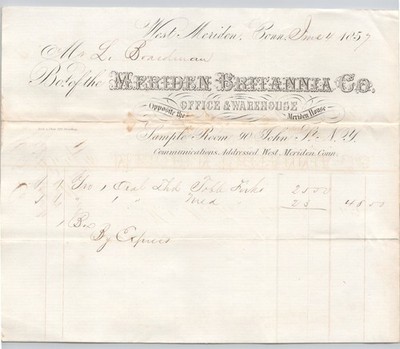 West Meriden, Conn. June 4 1857
Mr L. Boardman
Bot. of the MERIDEN BRITANNIA CO.
OFFICE & WAREHOUSE
Opposite the Meriden House
Sample Room 90 John St. N.Y.
Communications Addressed West Meriden, Conn.
Forks 25.00
Med 23 48.00
1 Box
By Express